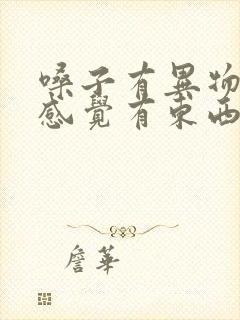 嗓子有異物
感覺有東西
詹華